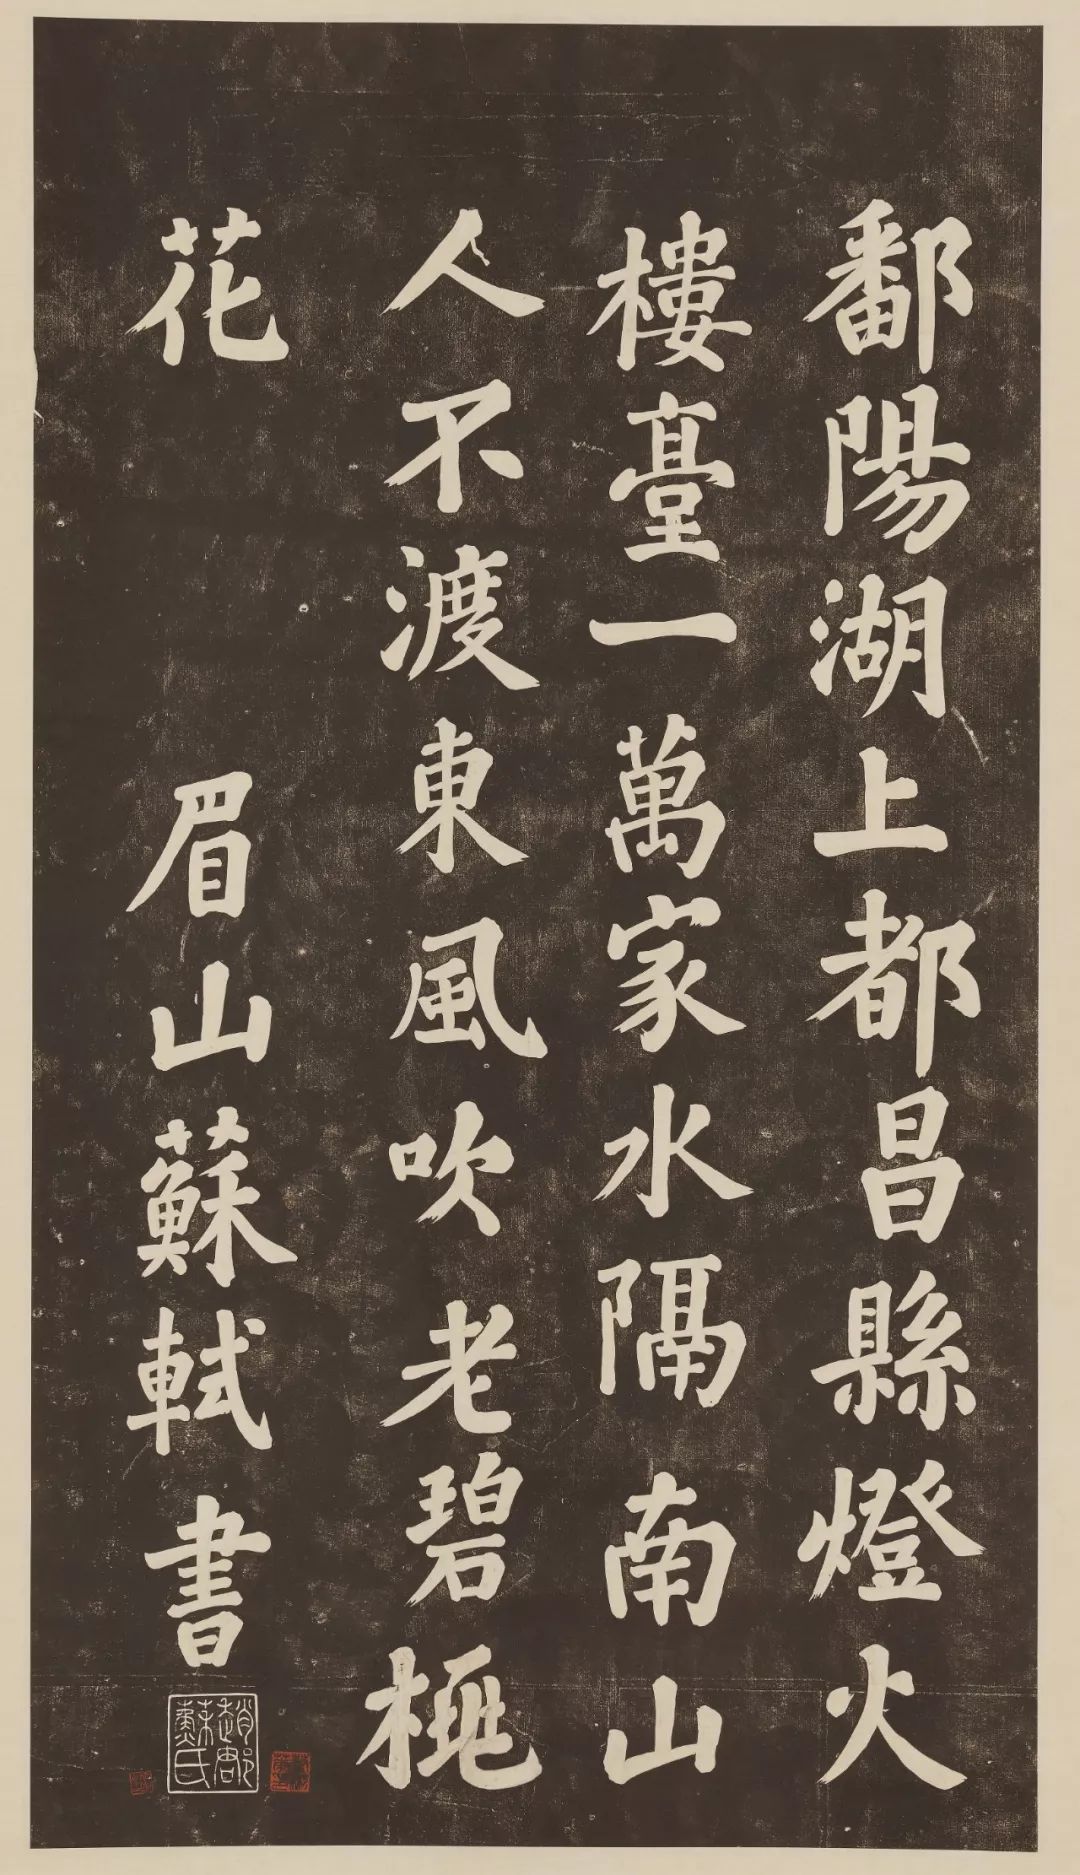 鄱陽湖上都昌縣燈火
樓臺一萬家水隔南山
人不渡東風吹老碧桃
花
眉山蘇軾書
趙郡蘇氏